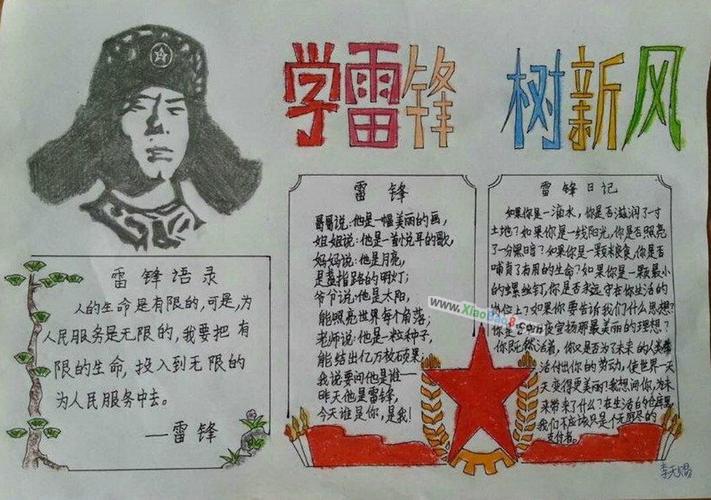 学雷锋 树新风
雷锋语录
人的生命是有限的,可是,为
人民服务是无限的,我要把有
限的生命,投入到无限的
为人民服务中去。
—雷锋
雷锋
哥哥说:他是一幅美丽的画,
姐姐说:他是一首悦耳的歌,
妈妈说:他是月亮,
是盏指路的明灯;
爷爷说:他是太阳,
能照亮世界每个角落;
老师说:他是一粒种子,
能结出亿万放硕果;
我说要问他是谁—
昨天他是雷锋,
今天谁是你,是我!
雷锋日记
如果你是一滴水,你是否滋润了一寸
土地?如果你是一线阳光,你是否照亮
了一分黑暗?如果你是一颗粮食,你是否
哺育了有用的生命?如果你是一颗最小
的螺丝钉,你是否永远守在你生活的
岗位上?如果你要告诉我们什么思想?
你是否在日夜宣扬那最美丽的理想?
你既然活着,你又是否为了未来的人类
活付出你的劳动,使世界一天
天变得更美丽?我想问你,为未
来带来了什么?在生活的仓库里
我们不应该只是个无穷尽的
支付者。
www.XiaoBao8.com